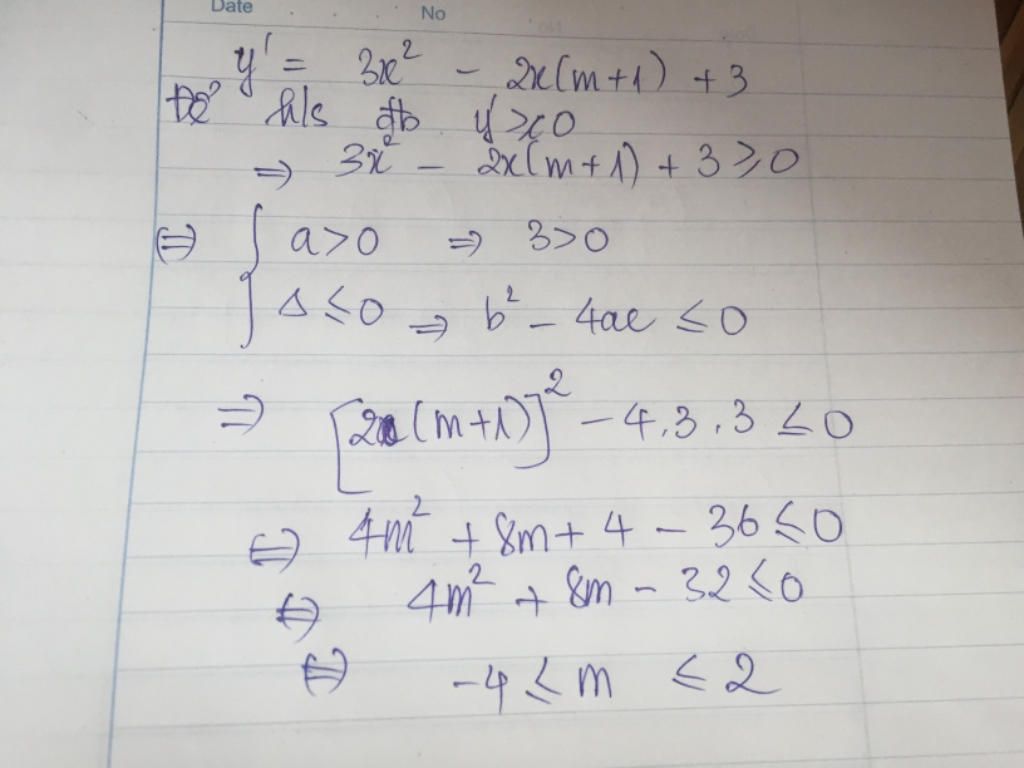 Date No
y' = 3x² - 2x(m+1) + 3
Để h/s đb y' ≥ 0
⇒ 3x² - 2x(m+1) + 3 ≥ 0
⇔ { a > 0 ⇒ 3 > 0
Δ ≤ 0 ⇒ b² - 4ac ≤ 0
⇒ [2(m+1)]² - 4.3.3 ≤ 0
⇔ 4m² + 8m + 4 - 36 ≤ 0
⇔ 4m² + 8m - 32 ≤ 0
⇔ -4 ≤ m ≤ 2